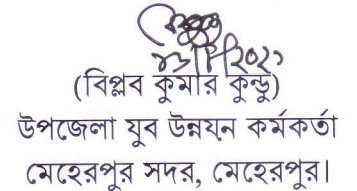 (বিপ্লব কুমার কুন্ডু)
উপজেলা যুব উন্নয়ন কর্মকর্তা
মেহেরপুর সদর, মেহেরপুর।